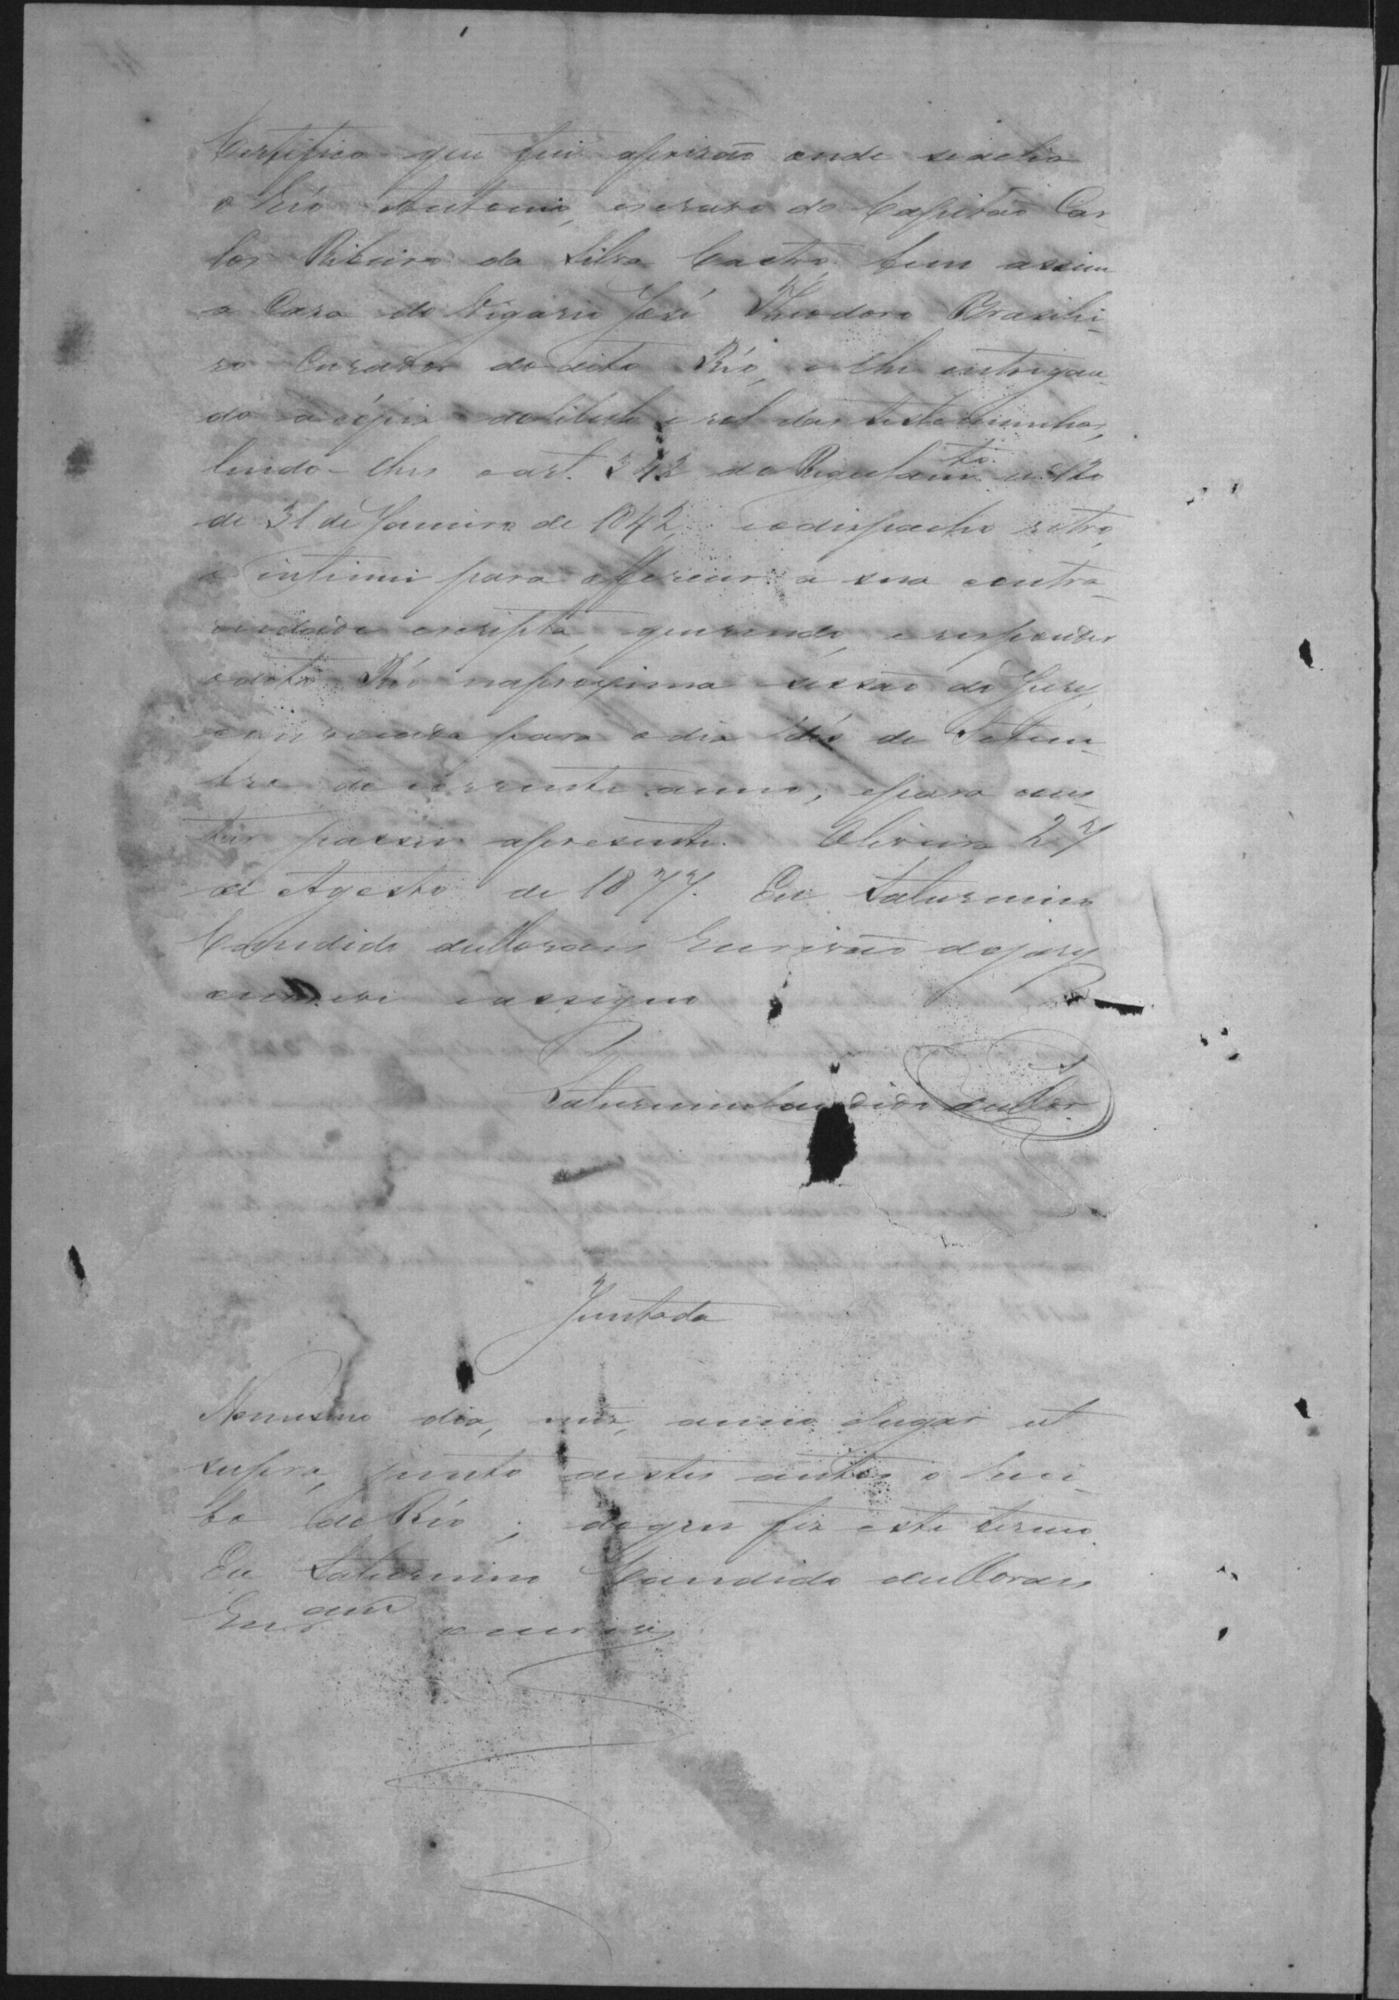 Certifico que fui aprizaõ onde seacha
o Reó Antonio, escravo do Capitaõ Car-
los Ribeiro da Silva Castro, bem assim
a Caza do Vigario José Theodoro Brasilei-
ro Curador do dito Réo, e lhe entregan-
do acópia do libelo e rol das testeminhas,
lendo-lhes o art. 342 do Regulam.to n. 120
de 31 de Janeiro de 1842, eodispacho retro,
o intimei para offerecer a sua contra-
riedade escripta, querendo, e responder
odito Réo naproxima sessão do Jury,
convocada para odia dés de Setem-
bro do corrente anno; epara cons-
tar passei apresente. Oliveira 27
de Agosto de 1877. Eu Saturnino
Candido deMoraes Escrivaõ dojury
escrevi eassigno
Saturnino Candido deMor
Juntada
Nomesmo dia, mez, anno elugar ut
supra, junto aestes autos o Reci-
bo do Réo; doque fiz este termo.
Eu Saturnino Candido deMoraes
escrevi